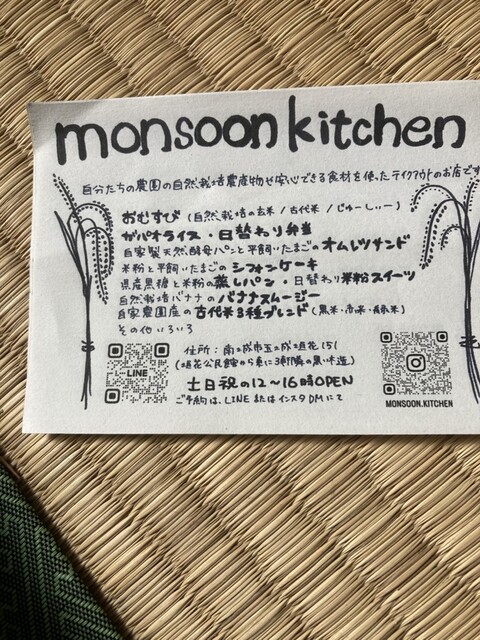 monsoon kitchen
自分たちの農園の自然栽培農産物や安心できる食材を使ったテイクアウトのお店です
おむすび (自然栽培の玄米 / 古代米 / じゅーしぃー)
ガパオライス・日替わり弁当
自家製天然酵母パンと平飼いたまごのオムレツサンド
米粉と平飼いたまごのシフォンケーキ
県産黒糖と米粉の蒸しパン・日替わり米粉スイーツ
自然栽培バナナのバナナスムージー
自家農園産の古代米3種ブレンド (黒米・赤米・緑米)
その他いろいろ
住所：南城市玉城垣花151
(垣花公民館から東に3軒隣の黒い木造)
土日祝の12〜16時OPEN
ご予約は、LINEまたはインスタDMにて
LINE
MONSOON.KITCHEN